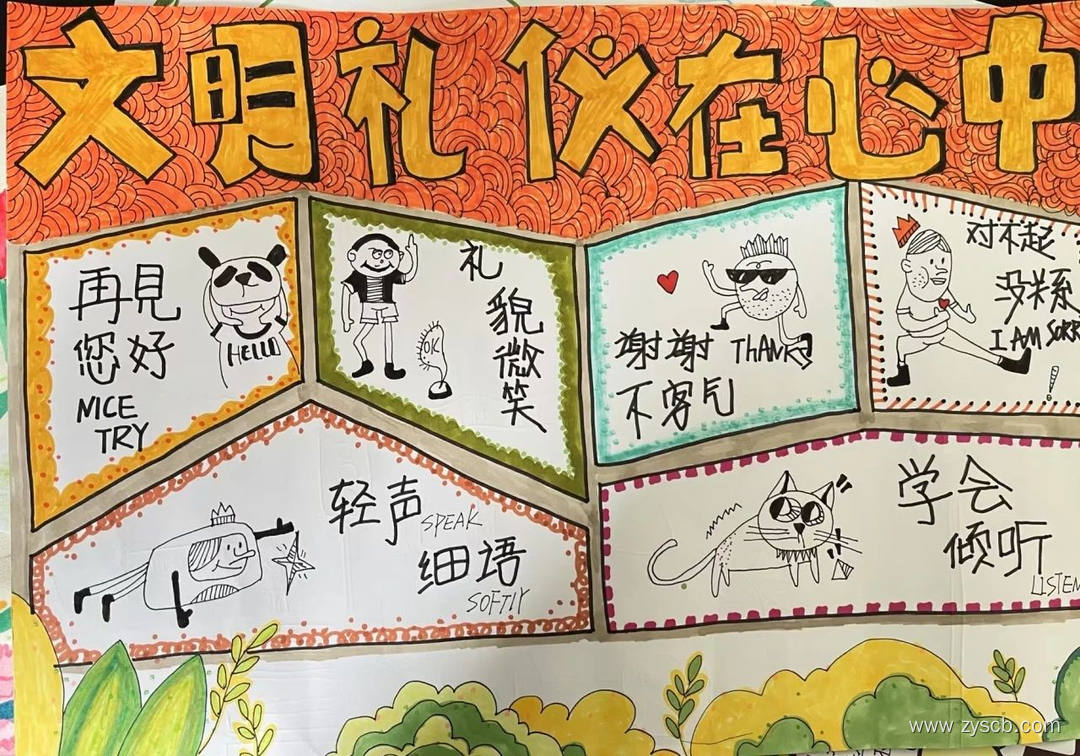 文明礼仪在心中
再見
您好
NICE
TRY
HELLO
礼
貌
微
笑
OK
谢谢 THANK
不客气
对不起
没关系
I AM SORRY
!
轻声
SPEAK
细语
SOFTLY
学会
倾听
LISTEN
www.zyscb.com